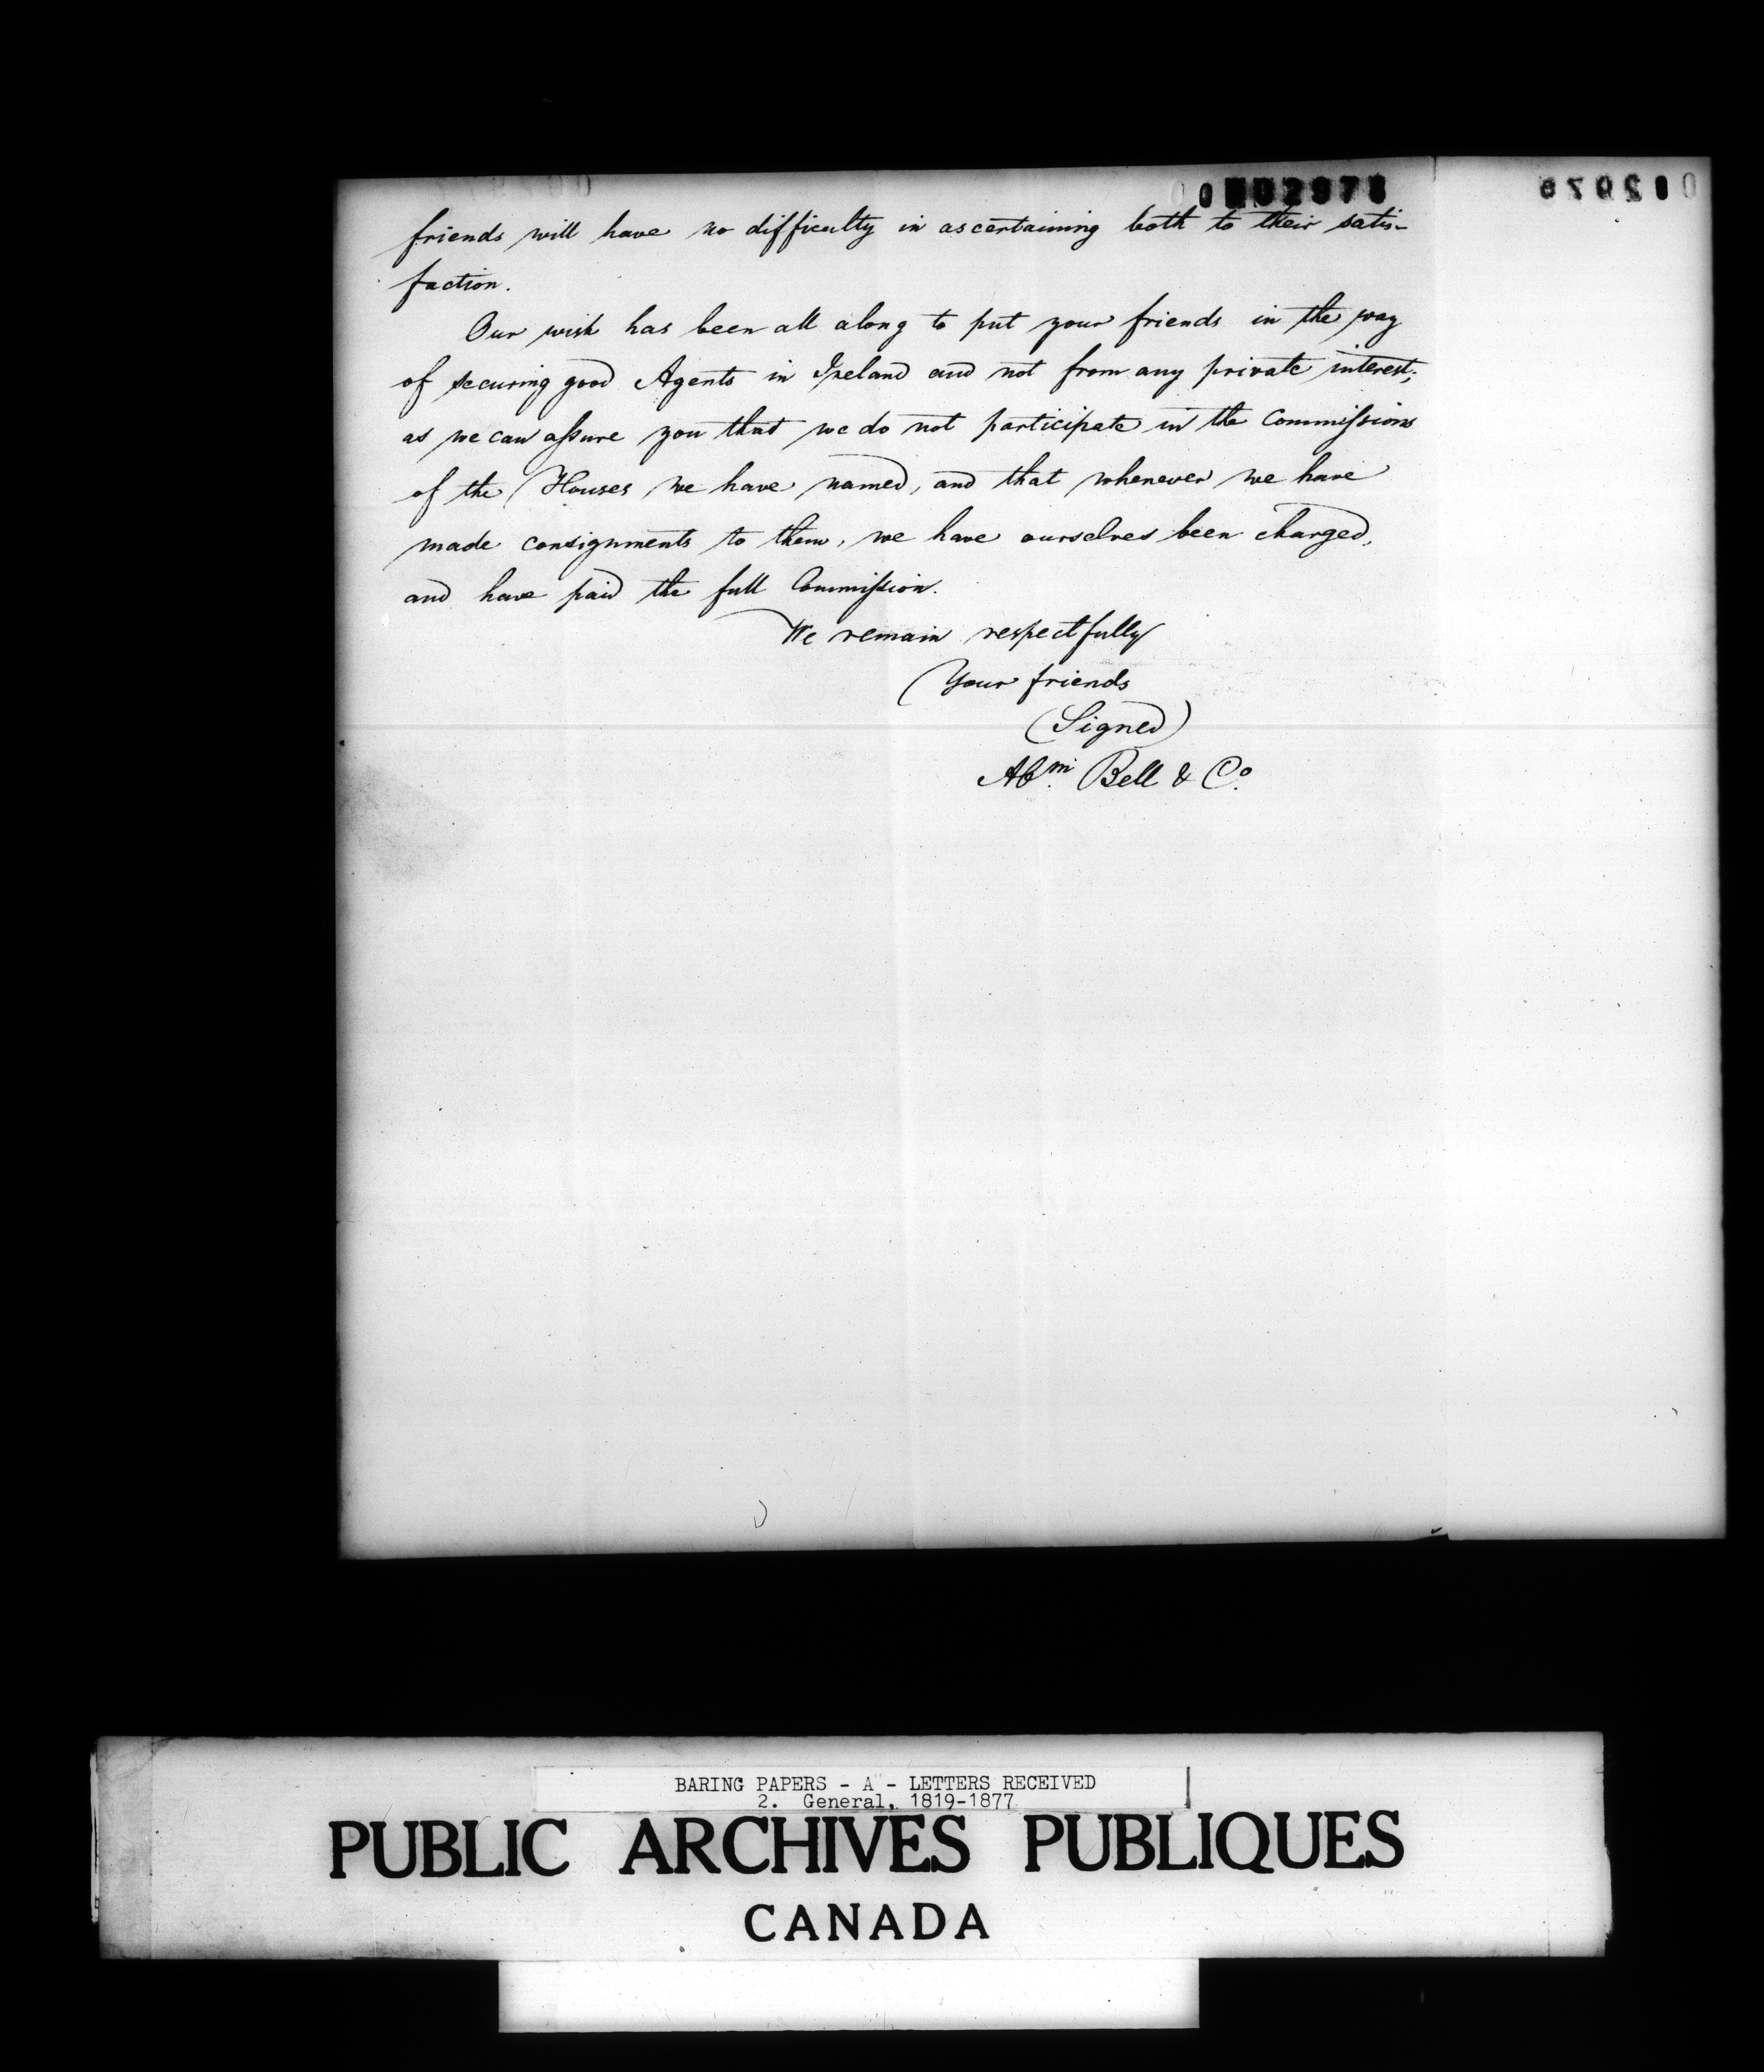 002978
friends will have no difficulty in ascertaining both to their satis-
faction.
Our wish has been all along to put your friends in the way
of securing good Agents in Ireland and not from any private interest;
as we can assure you that we do not participate in the Commissions
of the Houses we have named, and that whenever we have
made consignments to them, we have ourselves been charged,
and have paid the full Commission.
We remain respectfully
Your friends
(Signed)
Abm. Bell & Co.
BARING PAPERS - A - LETTERS RECEIVED
2. General, 1819-1877
PUBLIC ARCHIVES PUBLIQUES
CANADA